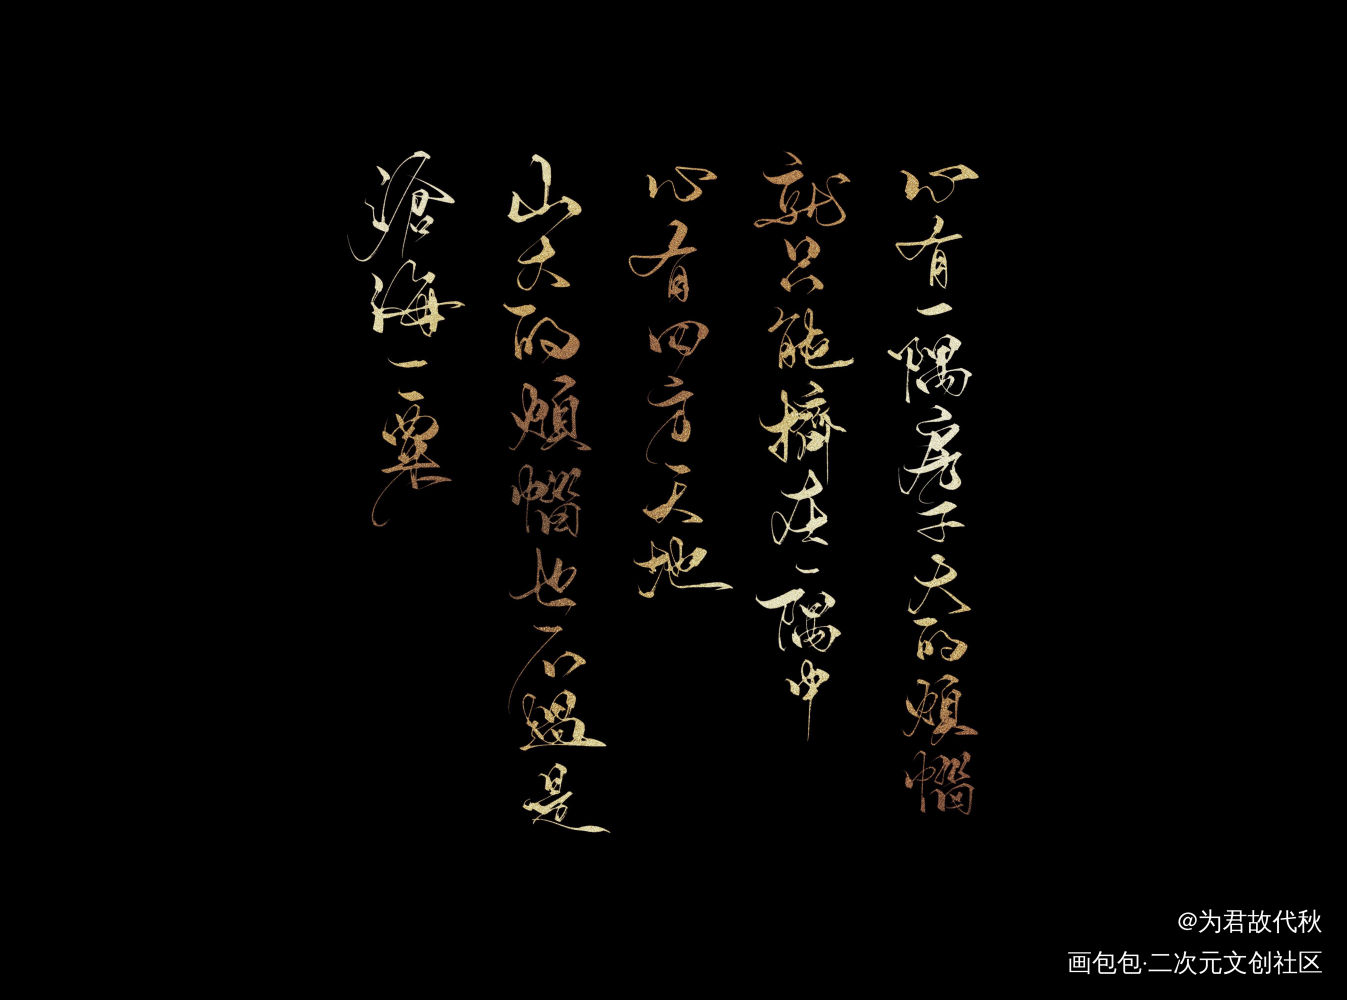 心有一隅房子大的烦恼
就只能挤在一隅中
心有四方天地
山大的烦恼也不过是
沧海一粟
@为君故代秋
画包包·二次元文创社区